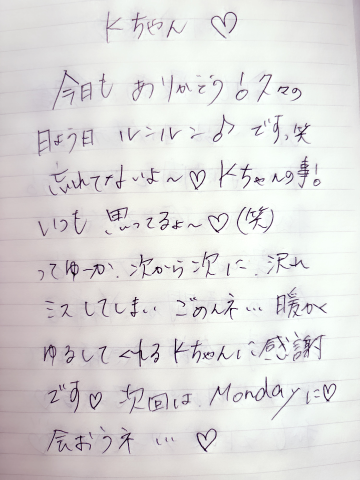 Kちゃん ♡
今日も ありがとう!久々の
日よう日 ルンルン♪ です。笑
忘れてないよ〜♡ Kちゃんの事!
いつも 思ってるよ〜♡(笑)
ってゆーか、次から次に、沢山
ミスしてしまい ごめんネ…暖かく
ゆるしてくれるKちゃんに感謝
です♡ 次回は、Mondayに♡
会おうネ … ♡